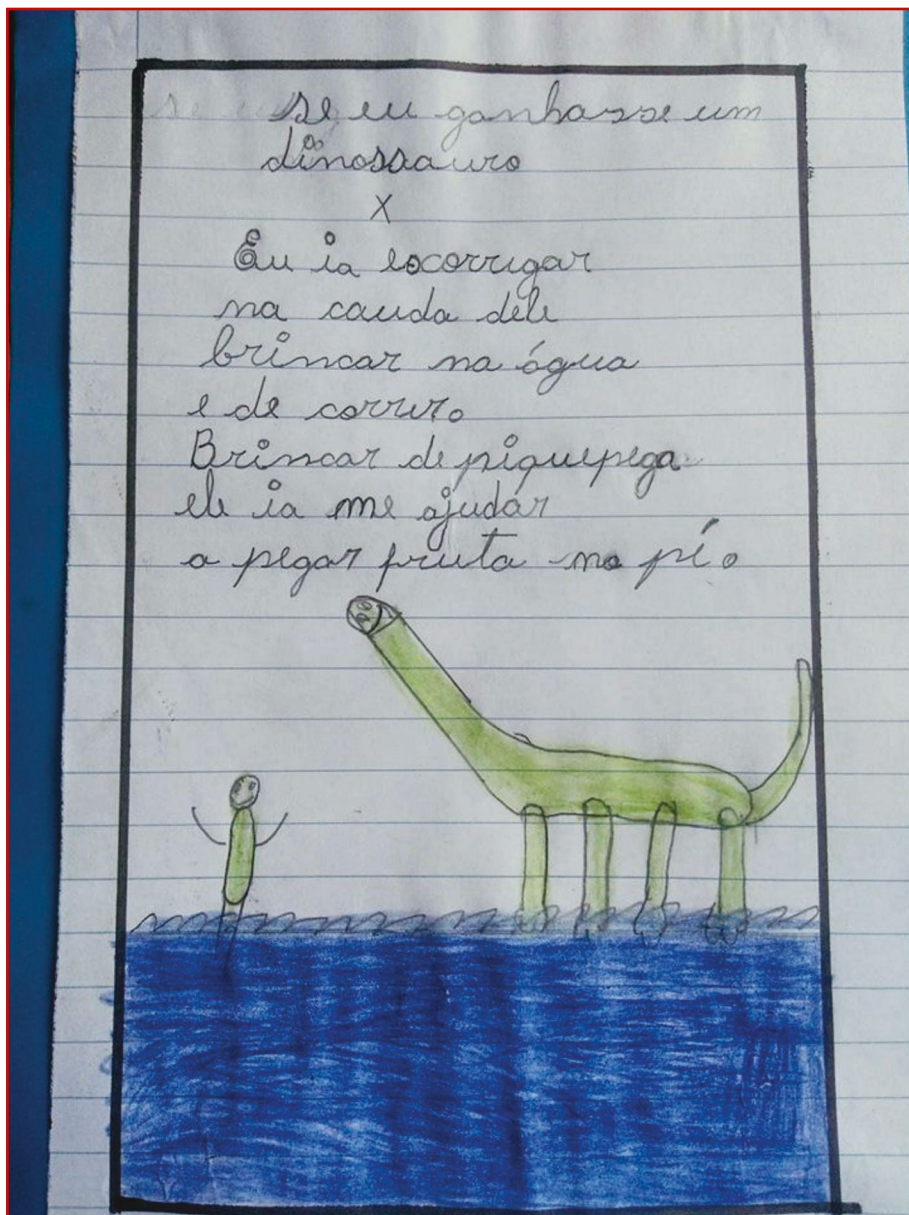 se eu ganhasse um
dinossauro
X
Eu ia escorrigar
na cauda dele
brincar na água
e de correr.
Brincar de piquepega
ele ia me ajudar
a pegar fruta no pé.